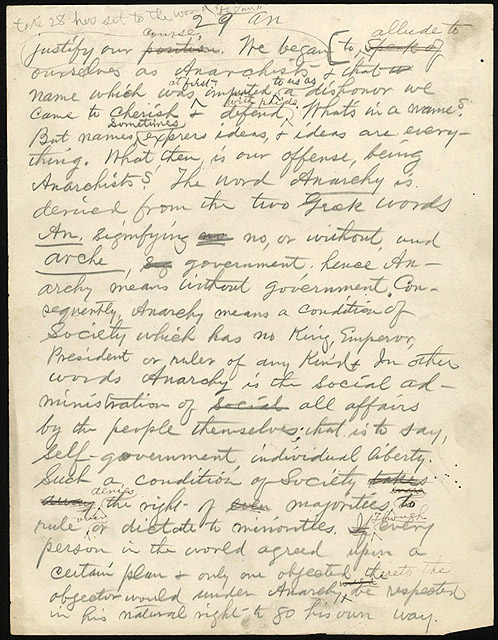 take 28 has set to the word
29 an
course allude to
justify our position. We began [to speak of
ourselves as Anarchists & that
at first to us as
name which was imputed a dishonor we
with pride
came to cherish & defend. What's in a name?
Sometimes
But names express ideas, & ideas are every-
thing. What then, is our offense, being
Anarchists? The word Anarchy is
derived from the two Greek words
An, signifying no, or without, and
arche, government. hence An-
archy means without government. Con-
sequently, Anarchy means a condition of
Society which has no King, Emperor,
President or ruler of any Kind. In other
words Anarchy is the social ad-
ministration of social all affairs
by the people themselves; that is to say,
self-government, individual liberty.
Such a condition of Society takes
denies
away the right of even majorities to
over Though
rule or dictate to minorities. If every
person in the world agreed upon a
certain plan & only one objected thereto the
objector would under Anarchy, be respected
in his natural right to go his own way.